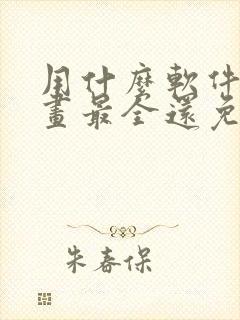 用什麼軟件
畫最全還免
朱春保